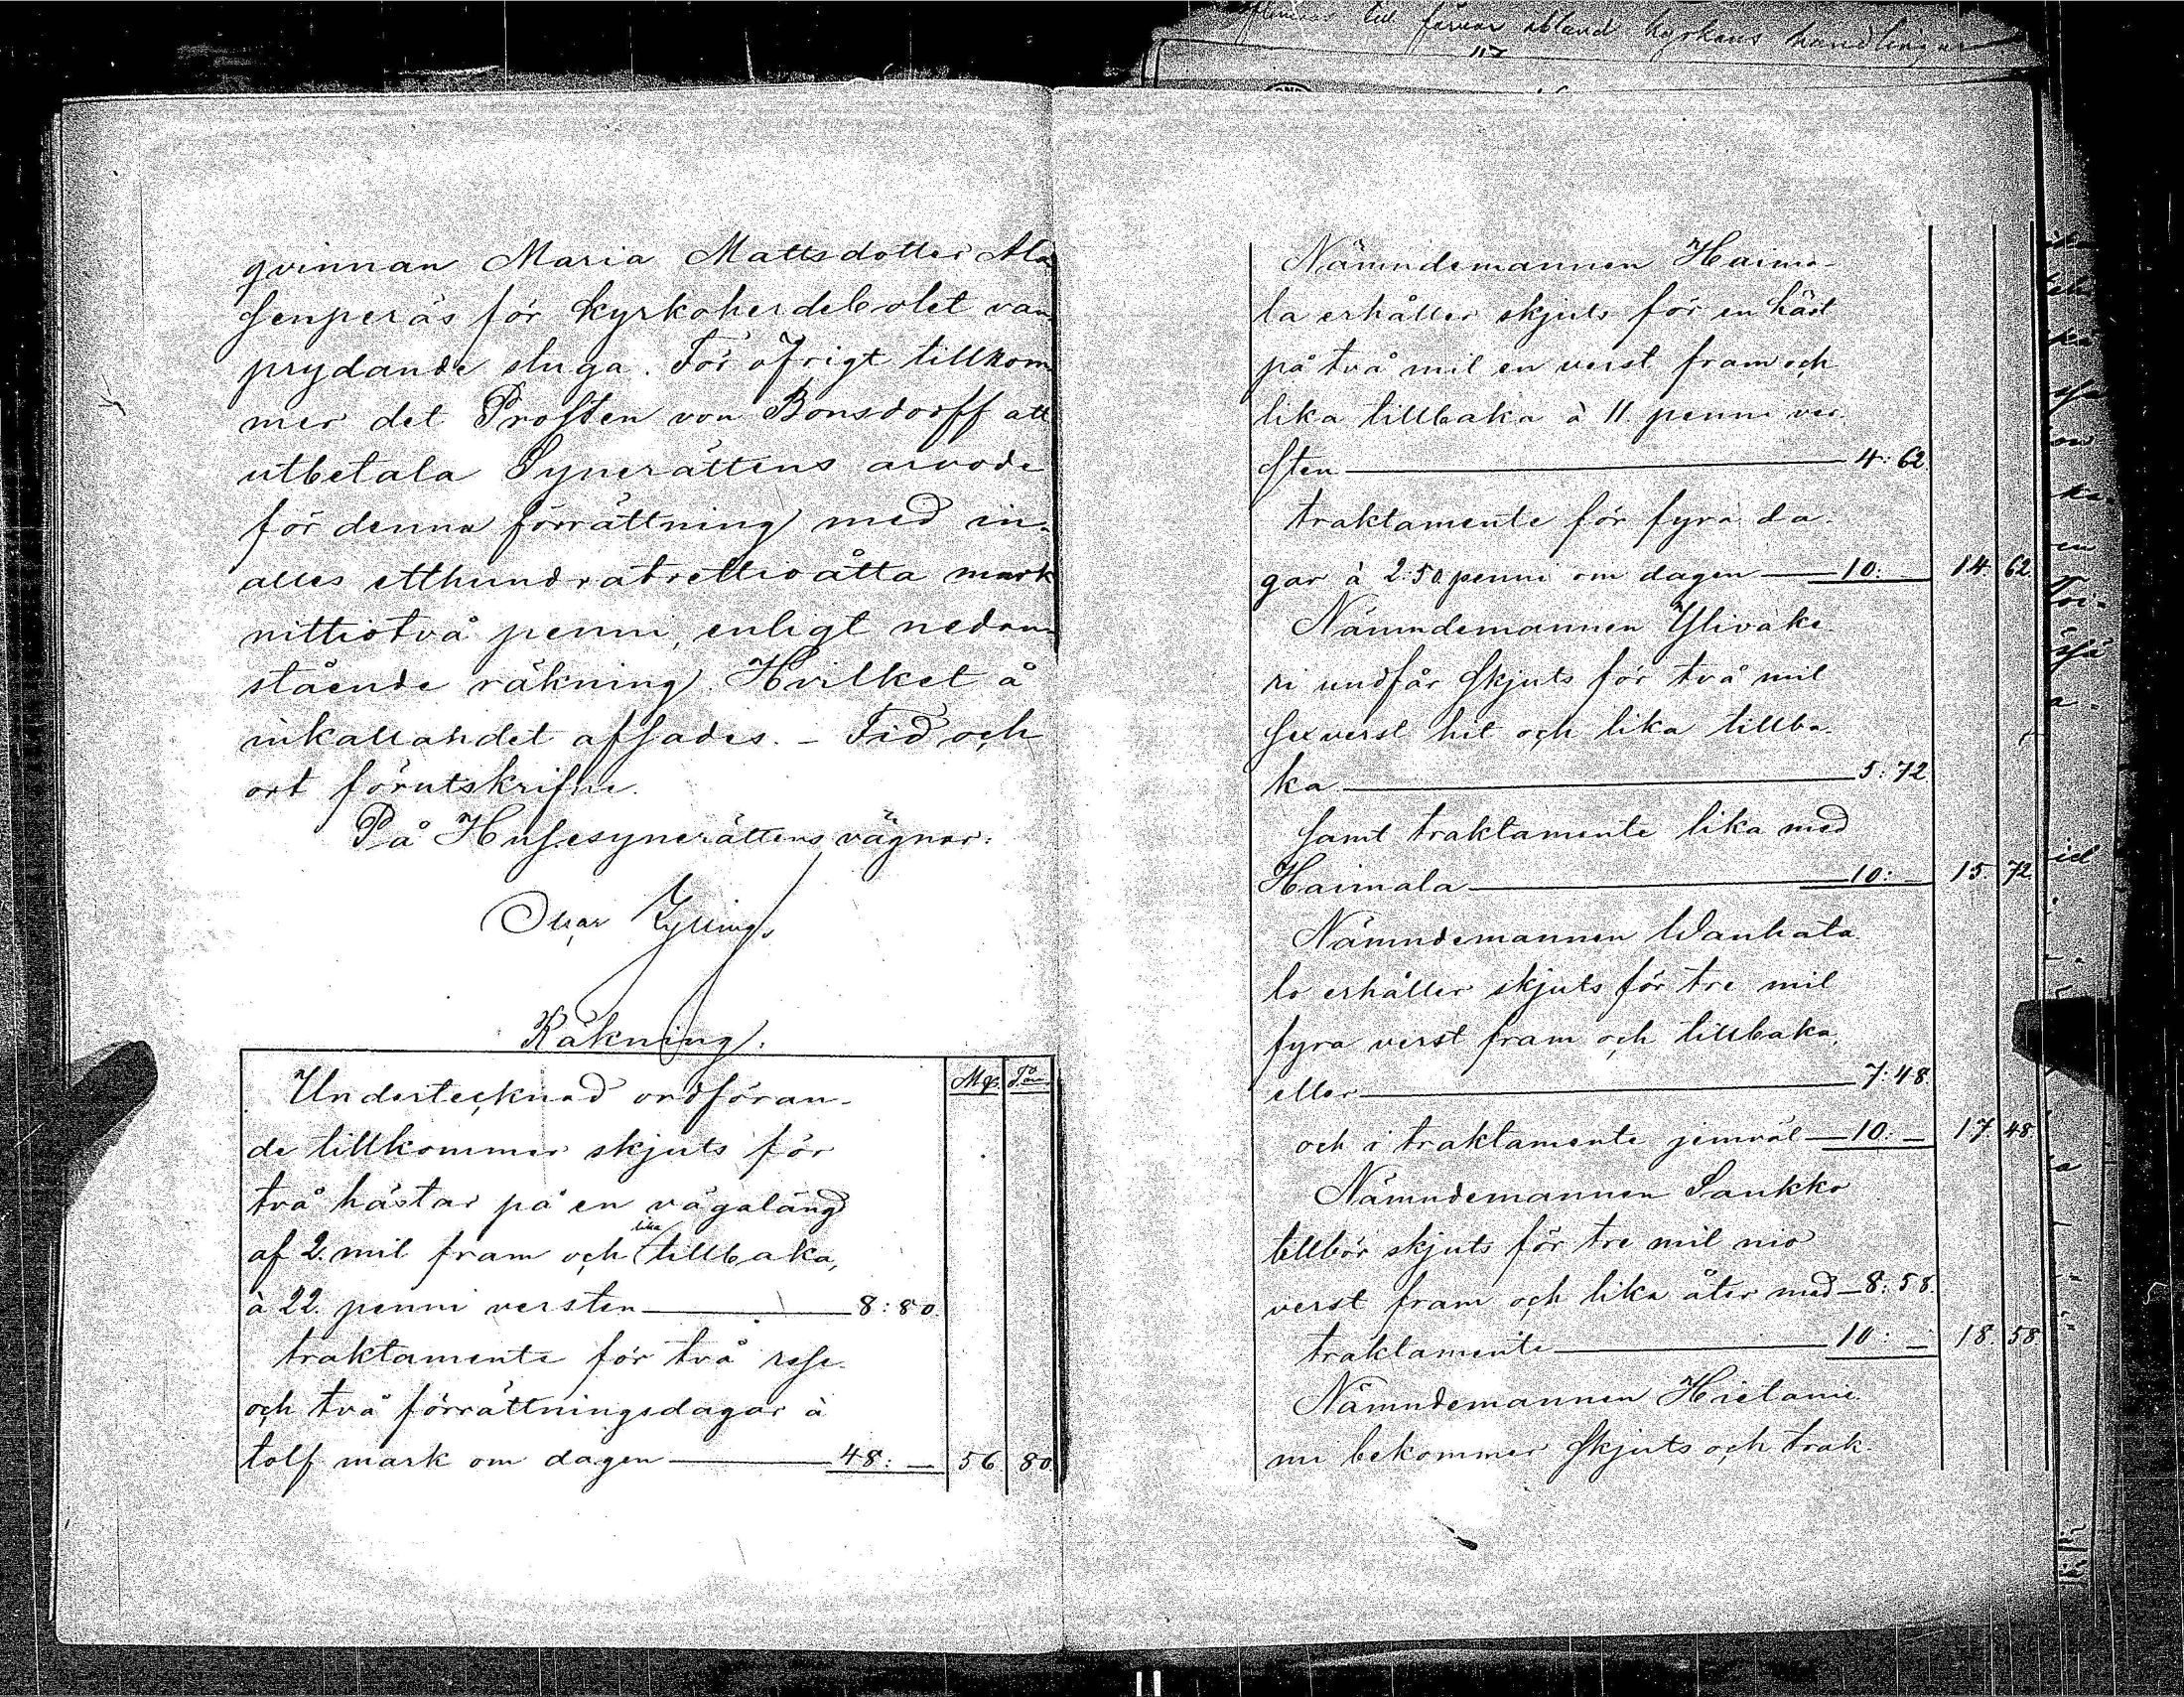 förvar ibland kyrkans handlingar
117
qvinnan Maria Mattsdotter Ala
senperäs för kyrkoherdebolet van
prydande stuga. För öfrigt tillkom
mer det Prosten von Bonsdorff att
utbetala Synerättens arvode
för denna förrättning med in-
alles etthundratrettioåtta mark
nittiotvå penni, enligt nedan-
stående räkning. Hvilket å
inkallandet afsades. – Tid och
ort förutskrifne.
På Husesynerättens vägnar:
Räkning:
Mp. Pän
Undertecknad ordföran-
de tillkommer skjuts för
två hästar på en vägalängd
lika
af 2. mil fram och tillbaka,
à 22. penni versten — 8:80.
traktamente för två rese-
och två förrättningsdagar à
tolf mark om dagen — 48:— 56 80
Nämndemannen Haima-
la erhåller skjuts för en häst
på två mil en verst fram och
lika tillbaka à 11. penni ver-
sten — 4:62
traktamente för fyra da-
gar à 2.50 penni om dagen — 10: 14. 62.
Nämndemannen Ylivake-
ri undfår skjuts för två mil
sex verst hit och lika tillba-
ka — 5:72
samt traktamente lika med
Haimala — 10:— 15 72.
Nämndemannen Wanhata-
lo erhåller skjuts för tre mil
fyra verst fram och tillbaka,
eller — 7:48
och i traktamente jemväl — 10:— 17. 48.
Nämndemannen Saukko
tillbör skjuts för tre mil nio
verst fram och lika åter med — 8:58.
traktamente — 10:— 18. 58
Nämndemannen Hietanie-
mi bekommer skjuts och trak-